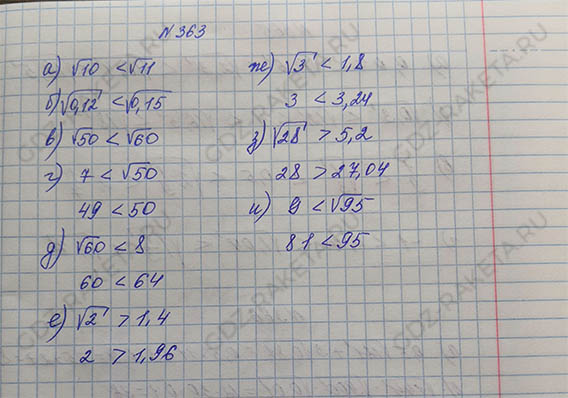 N 363
а) √10 < √11
б) √0,12 < √0,15
в) √50 < √60
г) 7 < √50
49 < 50
д) √60 < 8
60 < 64
е) √2 > 1,4
2 > 1,96
ж) √3 < 1,8
3 < 3,24
з) √28 > 5,2
28 > 27,04
и) 9 < √95
81 < 95
GDZ-RAKETA.RU